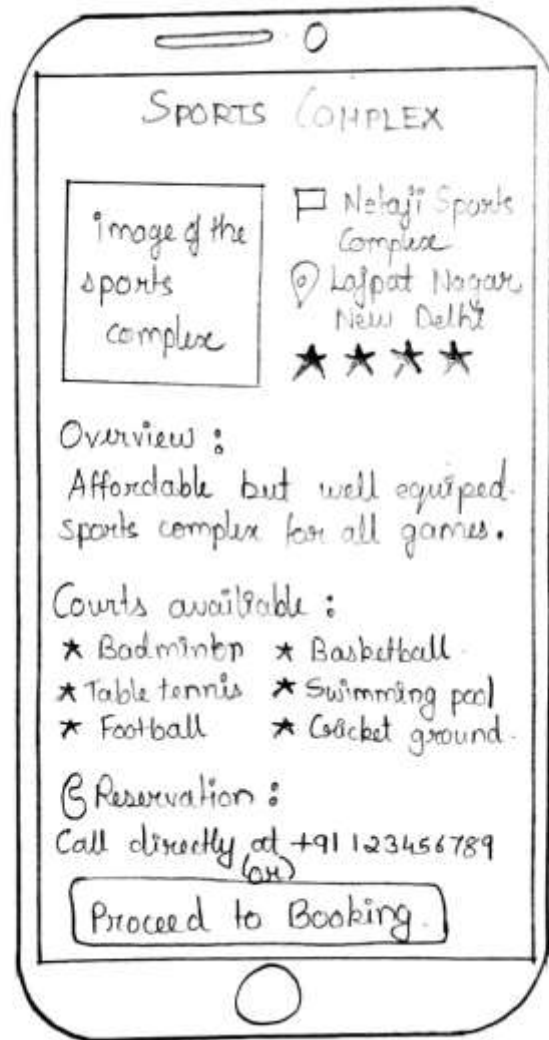 SPORTS COMPLEX
image of the
sports
complex
Netaji Sports
Complex
Lajpat Nagar,
New Delhi
Overview :
Affordable but well equiped.
sports complex for all games.
Courts availiable :
Badminton
Basketball.
Table tennis
Swimming pool
Football
Cricket ground.
Reservation :
Call directly at +91 123456789
(or)
Proceed to Booking.